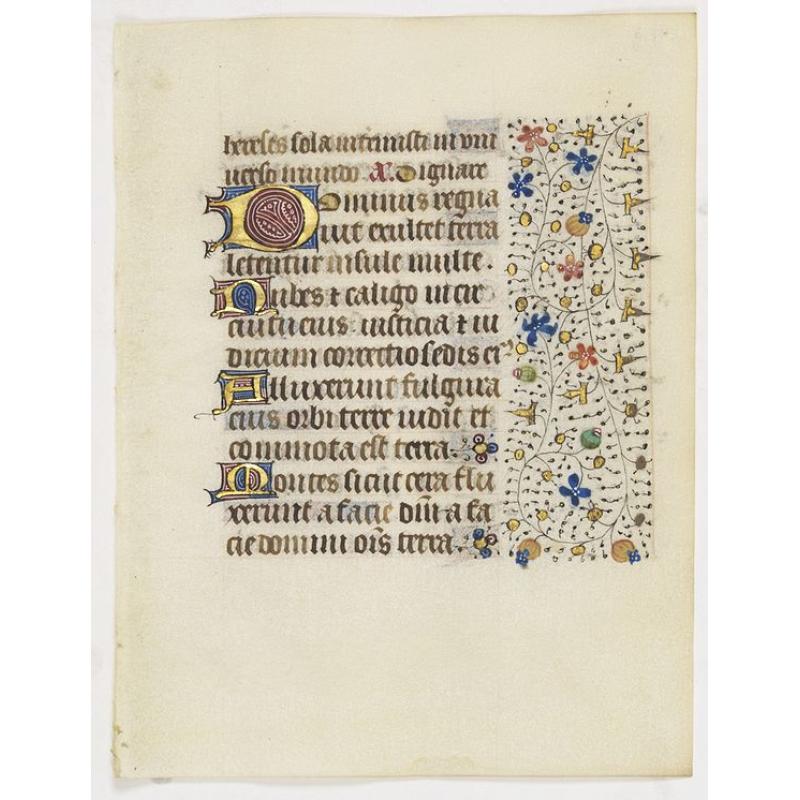 hereses sola interemisti in uni
uerso mundo. A. Dignare
Dominus regna
uit exultet terra
letentur insule multe.
Nubes et caligo in cir
cuitu eius: iusticia et iu
dicium correctio sedis ei9
Alluxerunt fulgura
eius orbi terre uidit et
commota est terra.
Montes sicut cera flu
xerunt a facie dñi a fa
cie domini oīs terra.